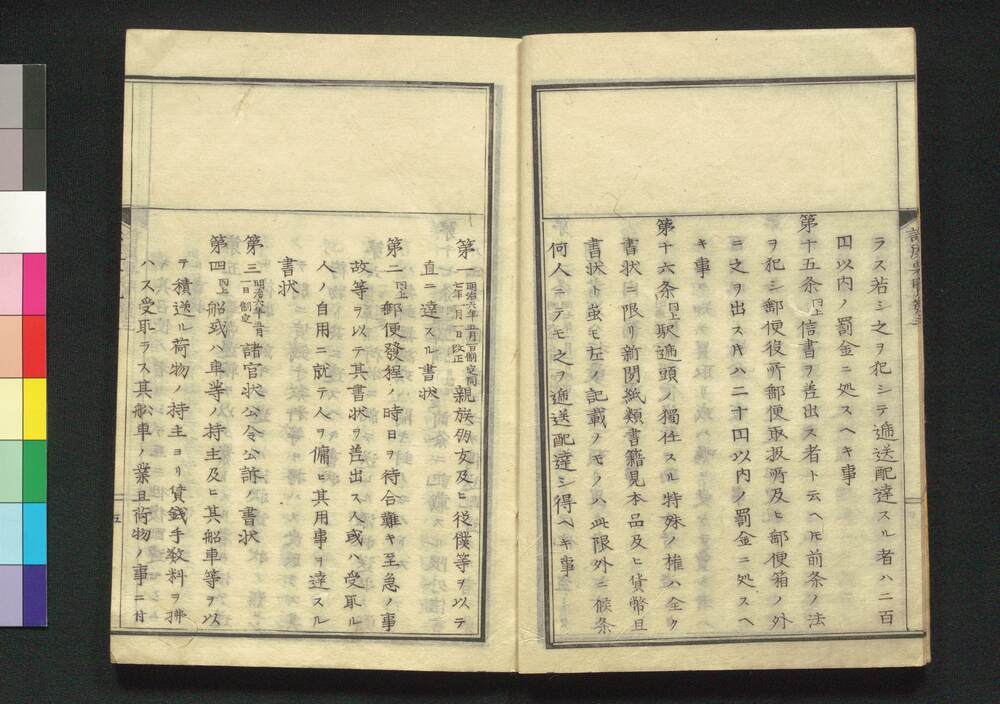 ラス若シ之ヲ犯シテ逓送配達スル者ハ二百
円以内ノ罰金ニ処スヘキ事
第十五条 同上 信書ヲ差出ス者ト云ヘ𪜈前条ノ法
ヲ犯シ郵便役所郵便取扱所及ヒ郵便箱ノ外
ニ之ヲ出ス𪜈ハ二十円以内ノ罰金ニ処スヘ
キ事
第十六条 同上 駅逓頭ノ獨任スル特殊ノ権ハ全ク
書状ニ限リ新聞紙類書籍見本品及ヒ貨幣且
書状ト虽モ左ノ記載ノモノハ此限外ニ候条
何人ニテモ之ヲ逓送配達シ得ヘキ事
第一 明治六年五月一日制定同七年一月一日改正 親族朋友及ヒ従僕等ヲ以テ
直ニ達スル書状
第二 同上 郵便發程ノ時日ヲ待合難キ至急ノ事
故等ヲ以テ其書状ヲ差出ス人或ハ受取ル
人ノ自用ニ就テ人ヲ傭ヒ其用事ヲ達スル
書状
第三 明治六年五月一日制定 諸官状公令公訴ノ書状
第四 同上 船或ハ車等ノ持主及ヒ其船車等ヲ以
テ積送ル荷物ノ持主ヨリ賃銭手数料ヲ拂
ハス受取ラス其船車ノ業且荷物ノ事ニ付
五